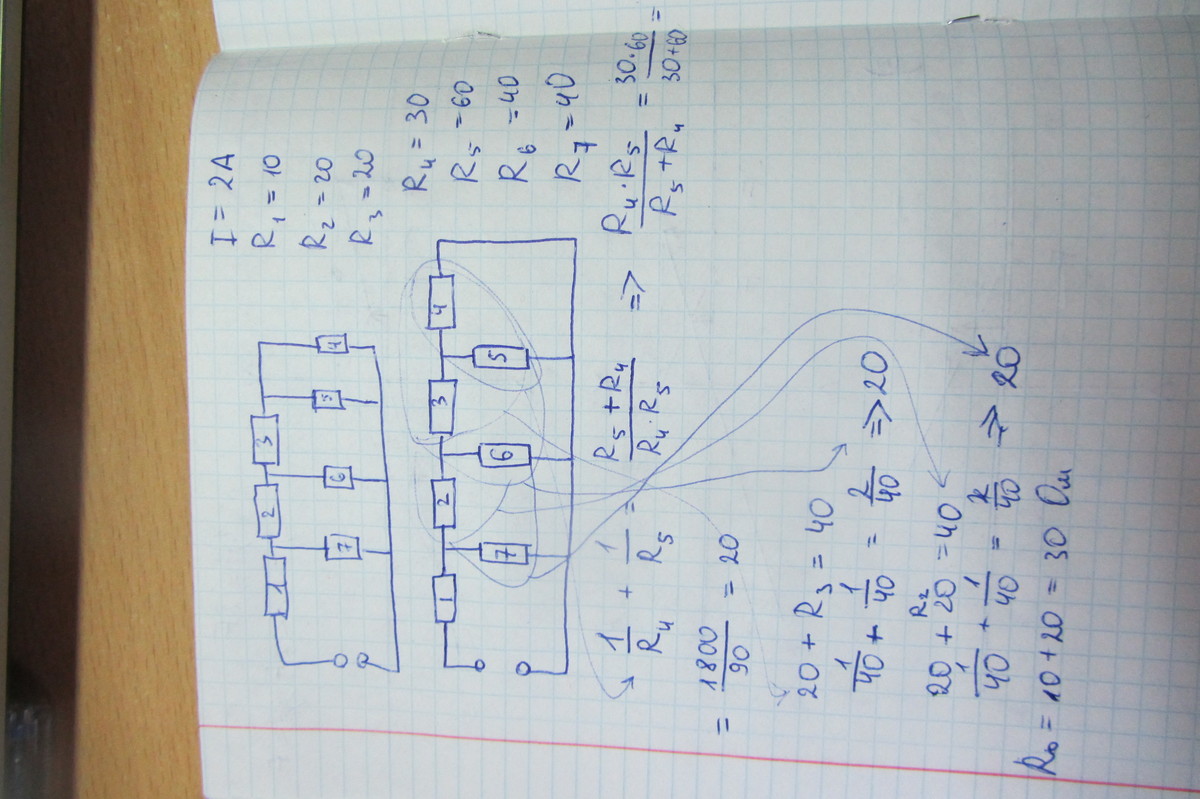 I = 2A
R₁ = 10
R₂ = 20
R₃ = 20
R₄ = 30
R₅ = 60
R₆ = 40
R₇ = 40
1 2 3 4
7 6 5
1 2 3 4
7 6 5
1/R₄ + 1/R₅ = (R₅ + R₄)/(R₄ · R₅) => (R₄ · R₅)/(R₅ + R₄) = (30·60)/(30+60) =
= 1800/90 = 20
20 + R₃ = 40
1/40 + 1/40 = 2/40 => 20
R₂
20 + 20 = 40
1/40 + 1/40 = 2/40 => 20
R₀ = 10 + 20 = 30 Ом